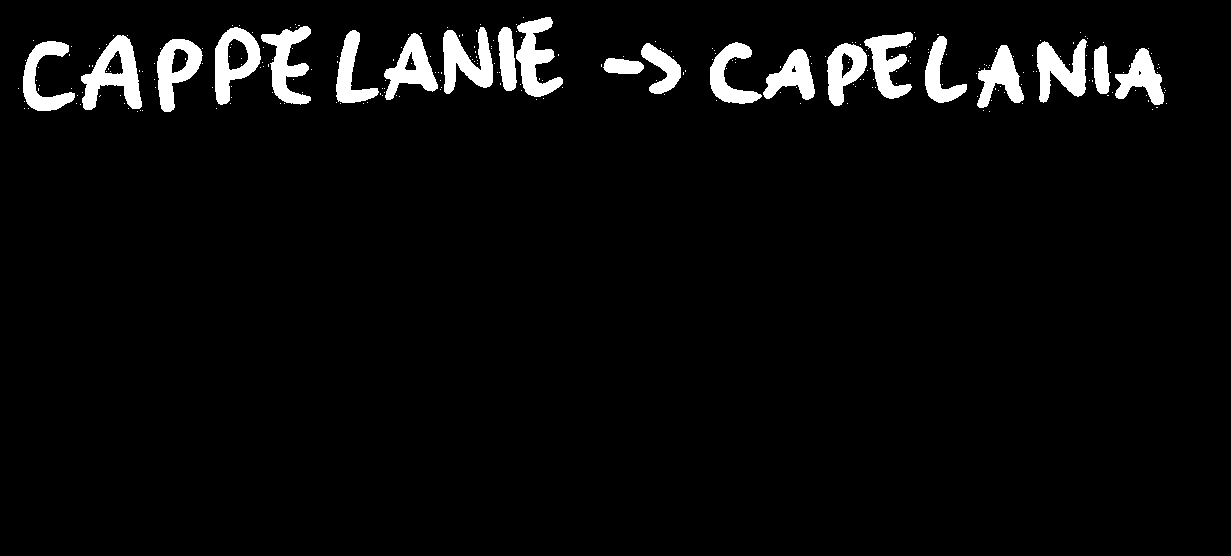 CAPPELANIE -> CAPELANIA